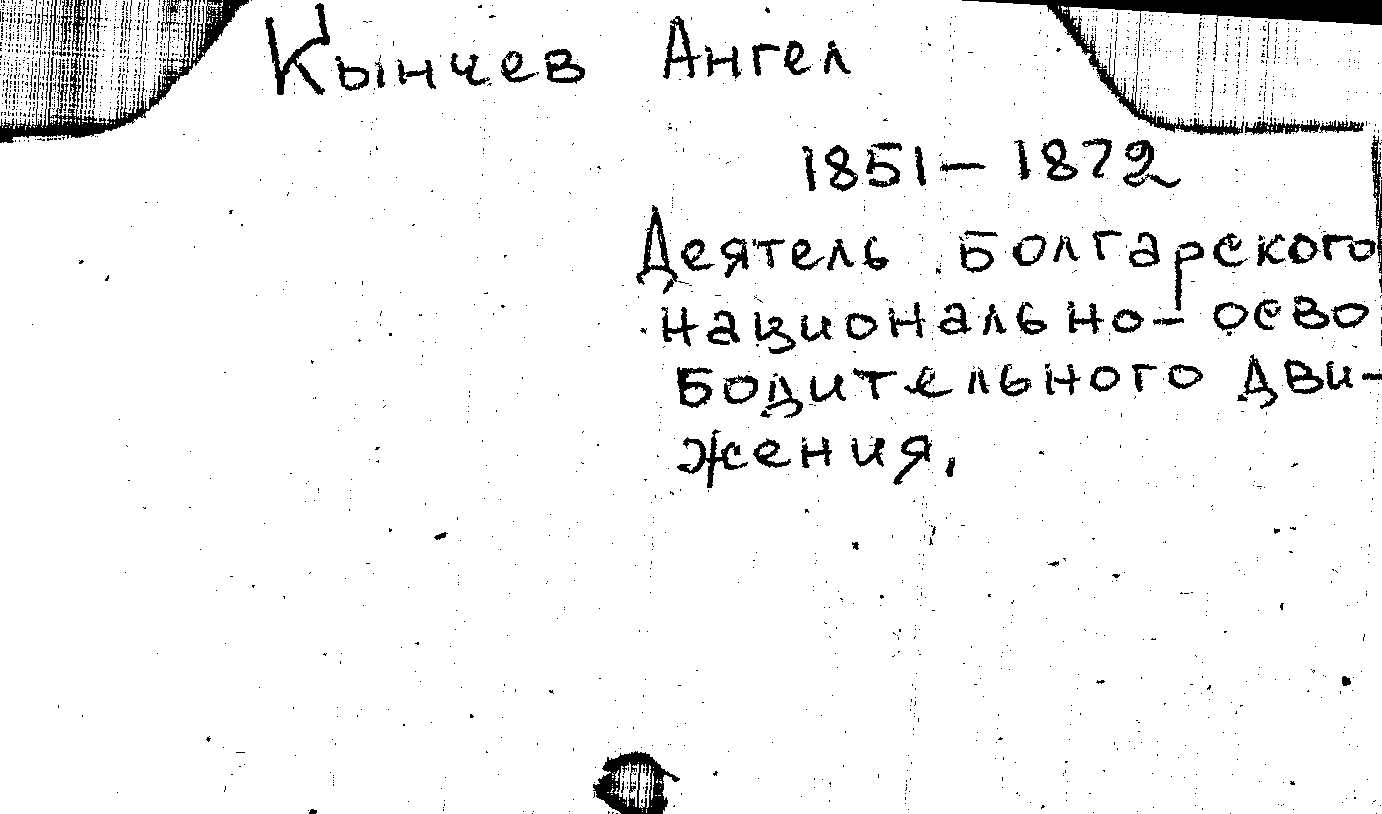 Кынчев Ангел
1851 – 1872
Деятель болгарского
национально-осво
бодительного дви-
жения,